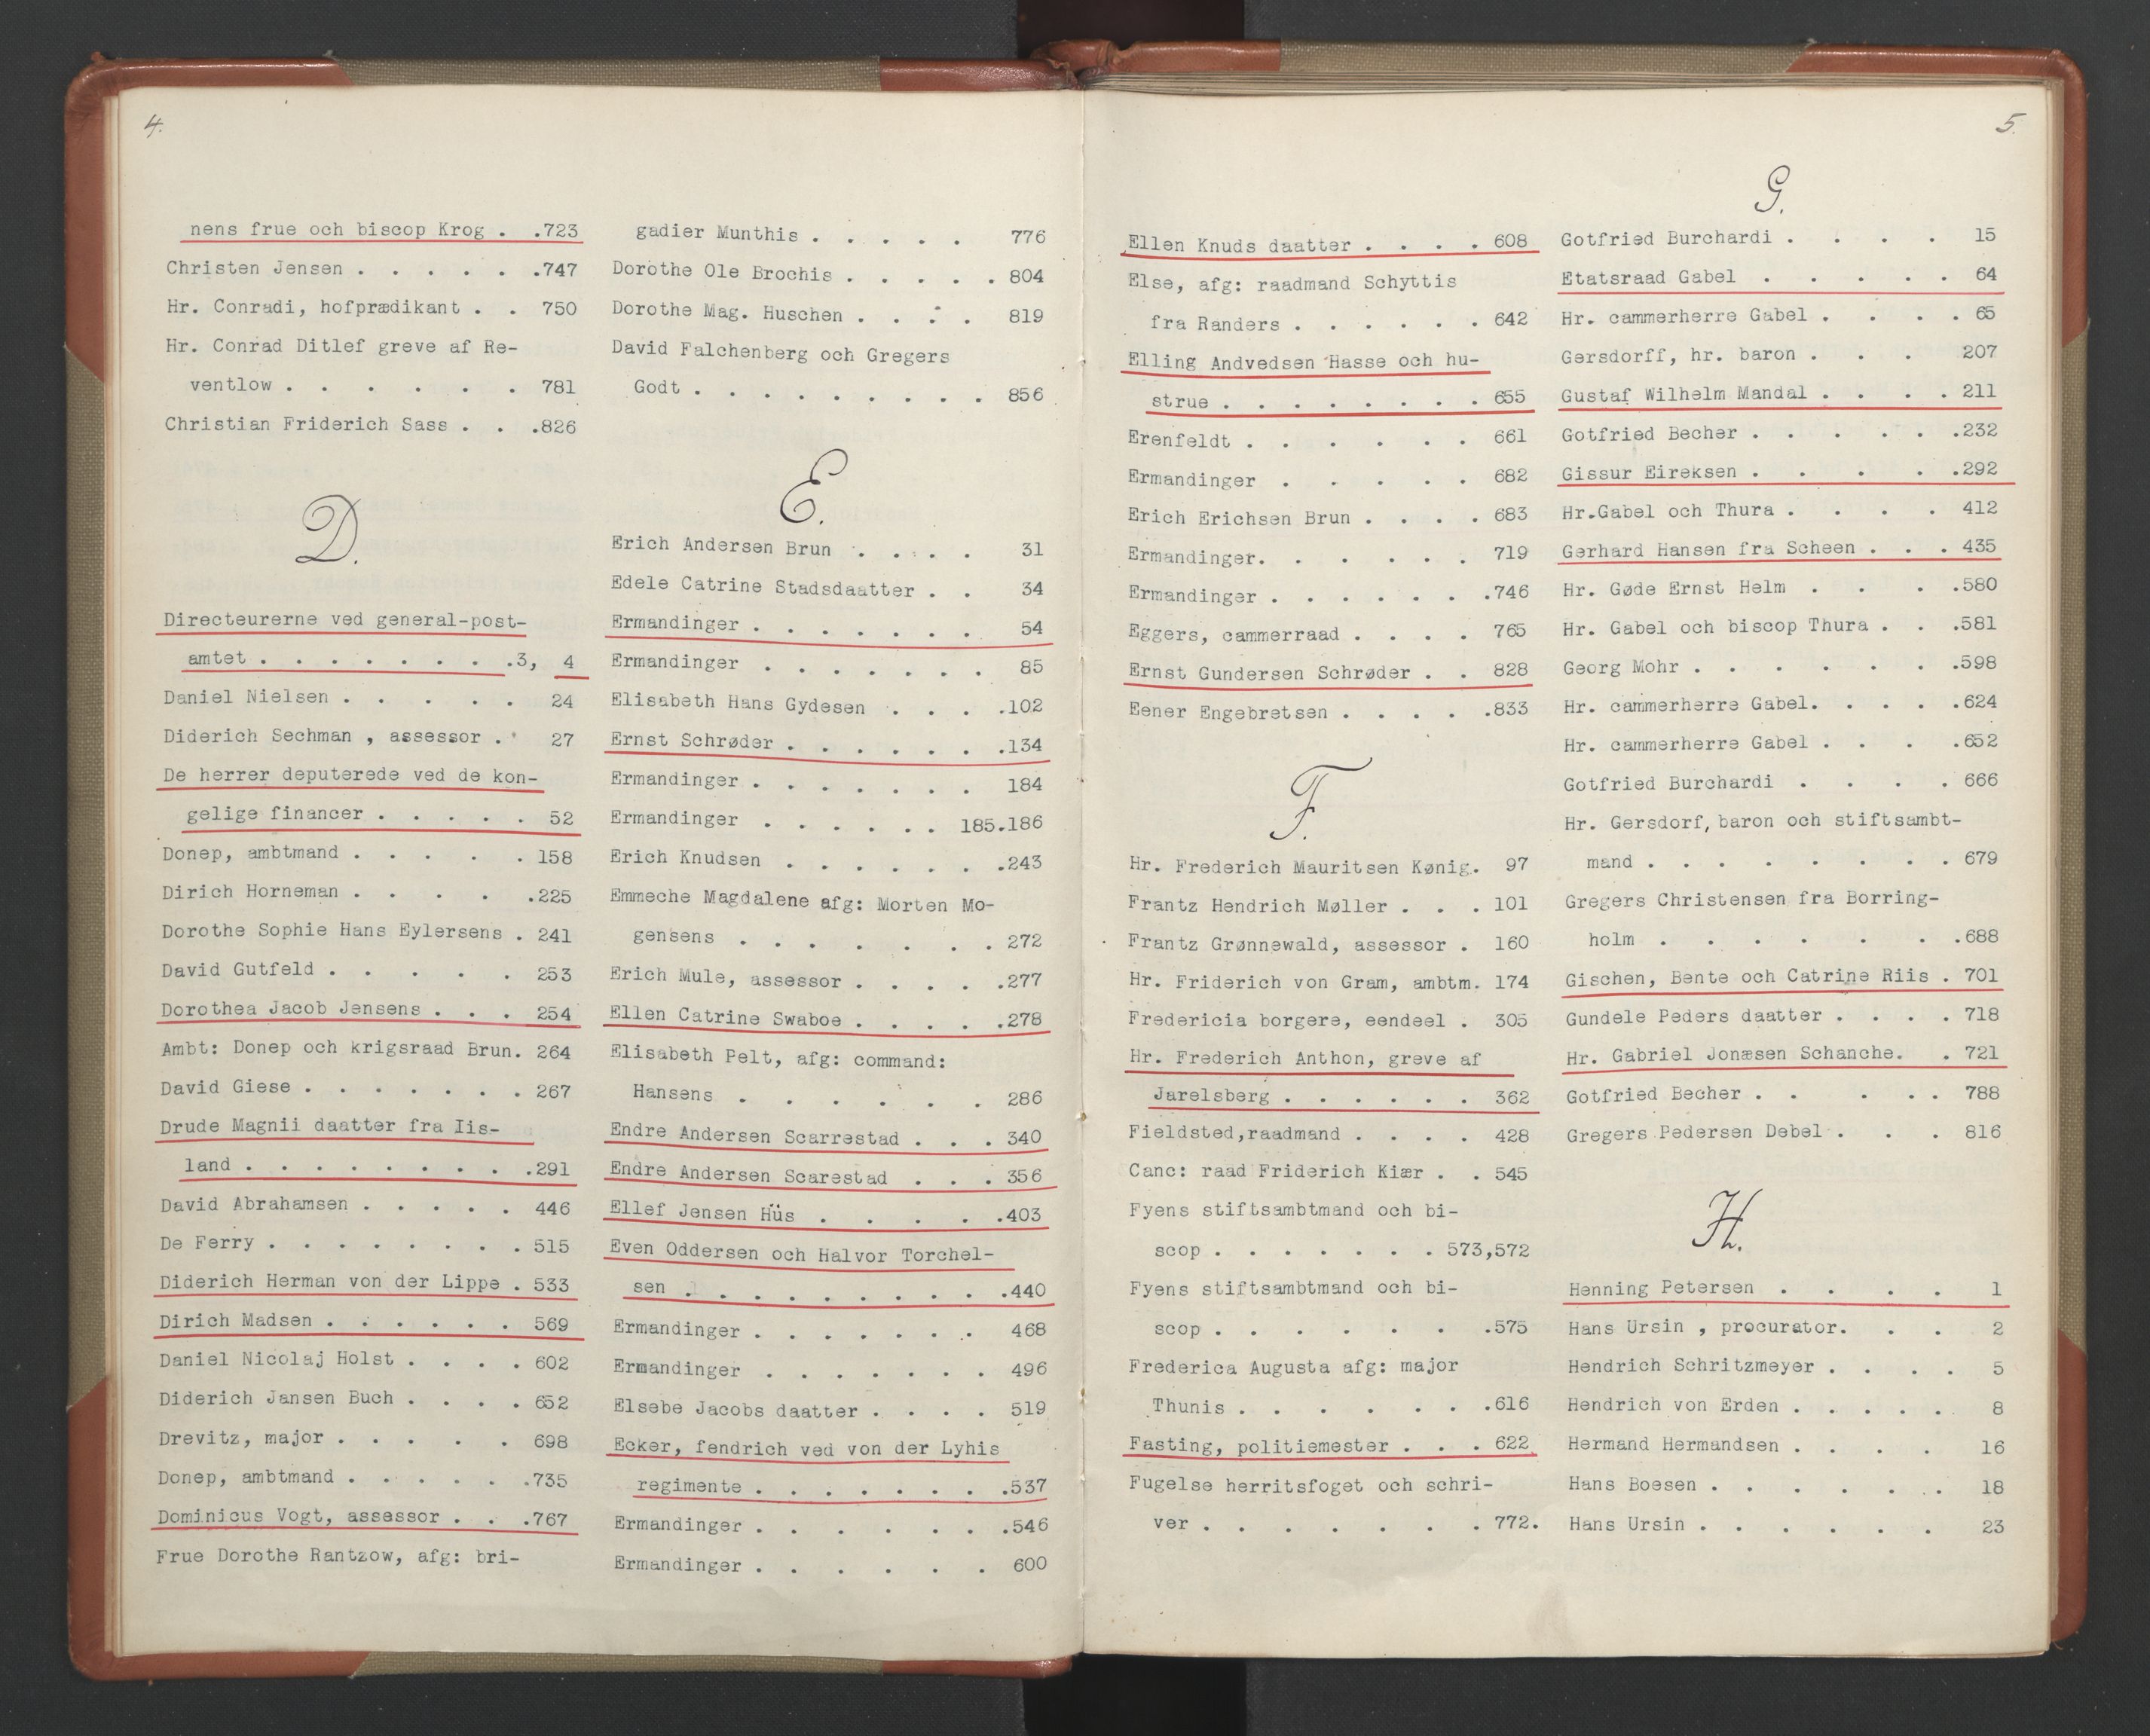 4.
nens frue och biscop Krog . .723
Christen Jensen . . . . . .747
Hr. Conradi, hofprædikant . . 750
Hr. Conrad Ditlef greve af Re-
ventlow . . . . . . . 781
Christian Friderich Sass . . .826
D.
Directeurerne ved general-post-
amtet . . . . . . . .3, 4
Daniel Nielsen . . . . . . 24
Diderich Sechman , assessor . 27
De herrer deputerede ved de kon-
gelige financer . . . . . 52
Donep, ambtmand . . . . . 158
Dirich Horneman . . . . .225
Dorothe Sophie Hans Eylersens . 241
David Gutfeld . . . . . . 253
Dorothea Jacob Jensens . . . 254
Ambt: Donep och krigsraad Brun. 264
David Giese . . . . . . . 267
Drude Magnii daatter fra Iis-
land . . . . . . . . .291
David Abrahamsen . . . . . 446
De Ferry . . . . . . . . 515
Diderich Herman von der Lippe . 533
Dirich Madsen . . . . . . 569
Daniel Nicolaj Holst . . . . 602
Diderich Jansen Buch . . . . 652
Drevitz, major . . . . . . 698
Donep, ambtmand . . . . . .735
Dominicus Vogt, assessor . . .767
Frue Dorothe Rantzow, afg: bri-
gadier Munthis . . . . . 776
Dorothe Ole Brochis . . . . . 804
Dorothe Mag. Huschen . . . . 819
David Falchenberg och Gregers
Godt . . . . . . . . . 856
E.
Erich Andersen Brun . . . . 31
Edele Catrine Stadsdaatter . . 34
Ermandinger . . . . . . . 54
Ermandinger . . . . . . . 85
Elisabeth Hans Gydesen . . . .102
Ernst Schrøder . . . . . . .134
Ermandinger . . . . . . . 184
Ermandinger . . . . . . 185.186
Erich Knudsen . . . . . . .243
Emmeche Magdalene afg: Morten Mo-
gensens . . . . . . . . 272
Erich Mule, assessor . . . . .277
Ellen Catrine Swaboe . . . . .278
Elisabeth Pelt, afg: command:
Hansens . . . . . . . 286
Endre Andersen Scarrestad . . . 340
Endre Andersen Scarestad . . . 356
Ellef Jensen Hüs . . . . .403
Even Oddersen och Halvor Torchel-
sen . . . . . . . . . .440
Ermandinger . . . . . . . 468
Ermandinger . . . . . . . 496
Elsebe Jacobs daatter . . . . 519
Ecker, fendrich ved von der Lyhis
regimente . . . . . . . .537
Ermandinger . . . . . . .546
Ermandinger . . . . . . . 600
5.
Ellen Knuds daatter . . . . 608
Else, afg: raadmand Schyttis
fra Randers . . . . . . 642
Elling Andvedsen Hasse och hu-
strue . . . . . . . . 655
Erenfeldt . . . . . . . 661
Ermandinger . . . . . . 682
Erich Erichsen Brun . . . . 683
Ermandinger. . . . . . . 719
Ermandinger . . . . . . .746
Eggers, cammerraad . . . . 765
Ernst Gundersen Schrøder . . 828
Eener Engebretsen . . . . .833
F.
Hr. Frederich Mauritsen Kønig. 97
Frantz Hendrich Møller . . . 101
Frantz Grønnewald, assessor . 160
Hr. Friderich von Gram, ambtm. 174
Fredericia borgere, eendeel . 305
Hr. Frederich Anthon, greve af
Jarelsberg . . . . . . 362
Fieldsted,raadmand . . . . 428
Canc: raad Friderich Kiær . . 545
Fyens stiftsambtmand och bi-
scop . . . . . . . 573,572
Fyens stiftsambtmand och bi-
scop . . . . . . .575
Frederica Augusta afg: major
Thunis . . . . . . .616
Fasting, politiemester . . . 622
Fugelse herritsfoget och schri-
ver . . . . . . . . 772.
G.
Gotfried Burchardi . . . . 15
Etatsraad Gabel . . . . . 64
Hr. cammerherre Gabel . . . . 65
Gersdorff, hr. baron . . . 207
Gustaf Wilhelm Mandal . . . . 211
Gotfried Becher . . . . . .232
Gissur Eireksen . . . . .292
Hr.Gabel och Thura . . . . 412
Gerhard Hansen fra Scheen . . . 435
Hr. Gøde Ernst Helm . . . .580
Hr. Gabel och biscop Thura . . .581
Georg Mohr . . . . . . .598
Hr. cammerherre Gabel. . . . .624
Hr. cammerherre Gabel . . . .652
Gotfried Burchardi . . . . 666
Hr. Gersdorf, baron och stiftsambt-
mand . . . . . . . . . 679
Gregers Christensen fra Borring-
holm . . . . . . .688
Gischen, Bente och Catrine Riis . 701
Gundele Peders daatter . . . . 718
Hr. Gabriel Jonæsen Schanche. . 721
Gotfried Becher . . . . . 788
Gregers Pedersen Debel . . . 816
H.
Henning Petersen . . . . 1
Hans Ursin , procurator. . . 2
Hendrich Schritzmeyer . . . . 5
Hendrich von Erden . . . . . 8
Hermand Hermandsen . . . . 16
Hans Boesen . . . . . . 18
Hans Ursin . . . . . . 23